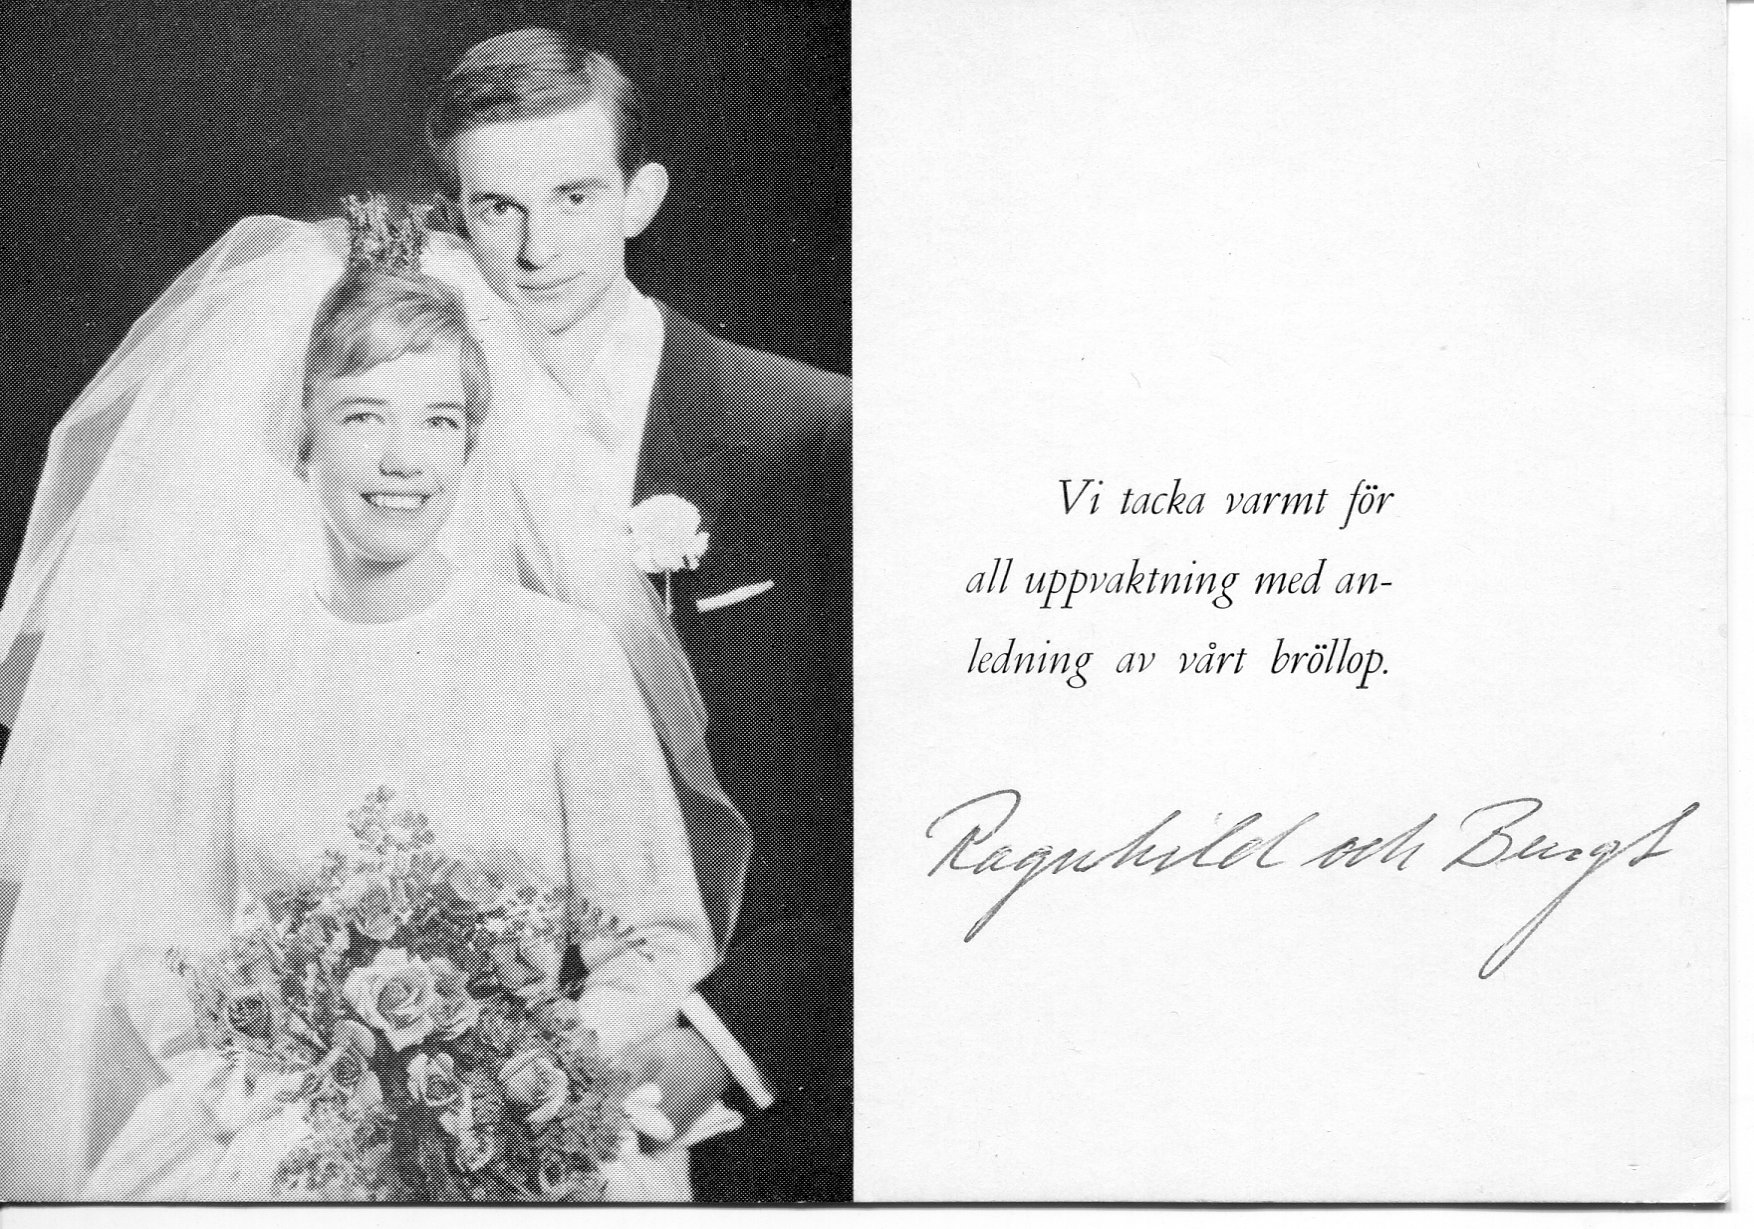 Vi tacka varmt för
all uppvaktning med an-
ledning av vårt bröllop.
Ragnhild och Bengt